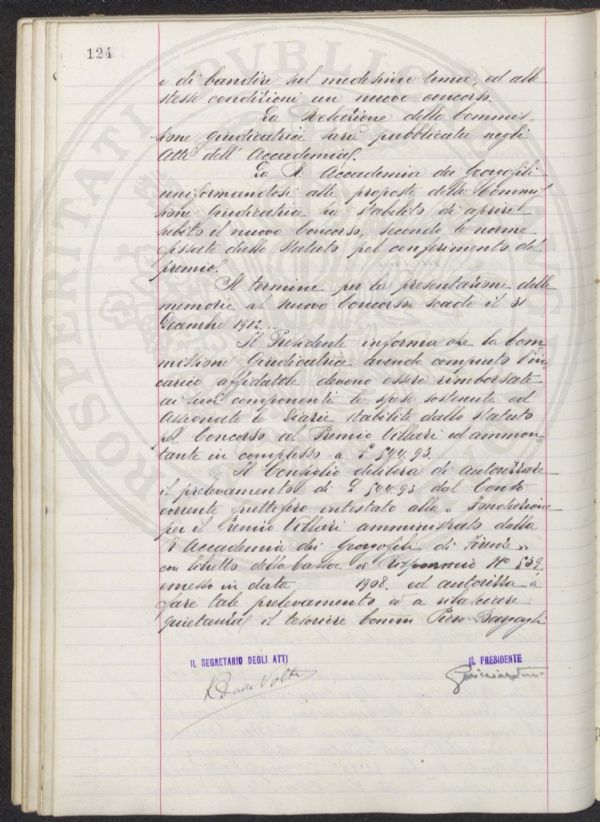 124
e di bandire sul medesimo tema, ed alle
stesse condizioni un nuovo concorso.
La Relazione della Commis-
sione giudicatrice sarà pubblicata negli
Atti dell'Accademia.
La R. Accademia dei Georgofili
uniformandosi alle proposte della Commis
sione Giudicatrice ha stabilito di aprire
subito il nuovo Concorso, secondo le norme
fissate dallo Statuto pel conferimento del
premio.
Il termine per la presentazione delle
memorie al nuovo Concorso scade il 31
Decembre 1912.
Il Presidente informa che la Com
missione Giudicatrice avendo compiuto l'in
carico affidatole devono essere rimborsate
ai componenti le spese sostenute ed
assegnate le diarie stabilite dallo Statuto
pel Concorso al Premio Villari ed ammon
tante in complesso a £ 544.93.
Il Consiglio delibera di autorizzare
il prelevamento di £ 544.93 dal Conto
corrente fruttifero intestato alla "Fondazione
per il Premio Villari amministrato dalla
R Accademia dei Georgofili di Firenze"
con libretto della Cassa di Risparmio N° 539
emesso in data 1908. ed autorizza a
fare tale prelevamento e a rilasciare
quietanza il tesoriere Comm Piero
IL SEGRETARIO DEGLI ATTI
IL PRESIDENTE
R Dalla Volta
Guicciardini